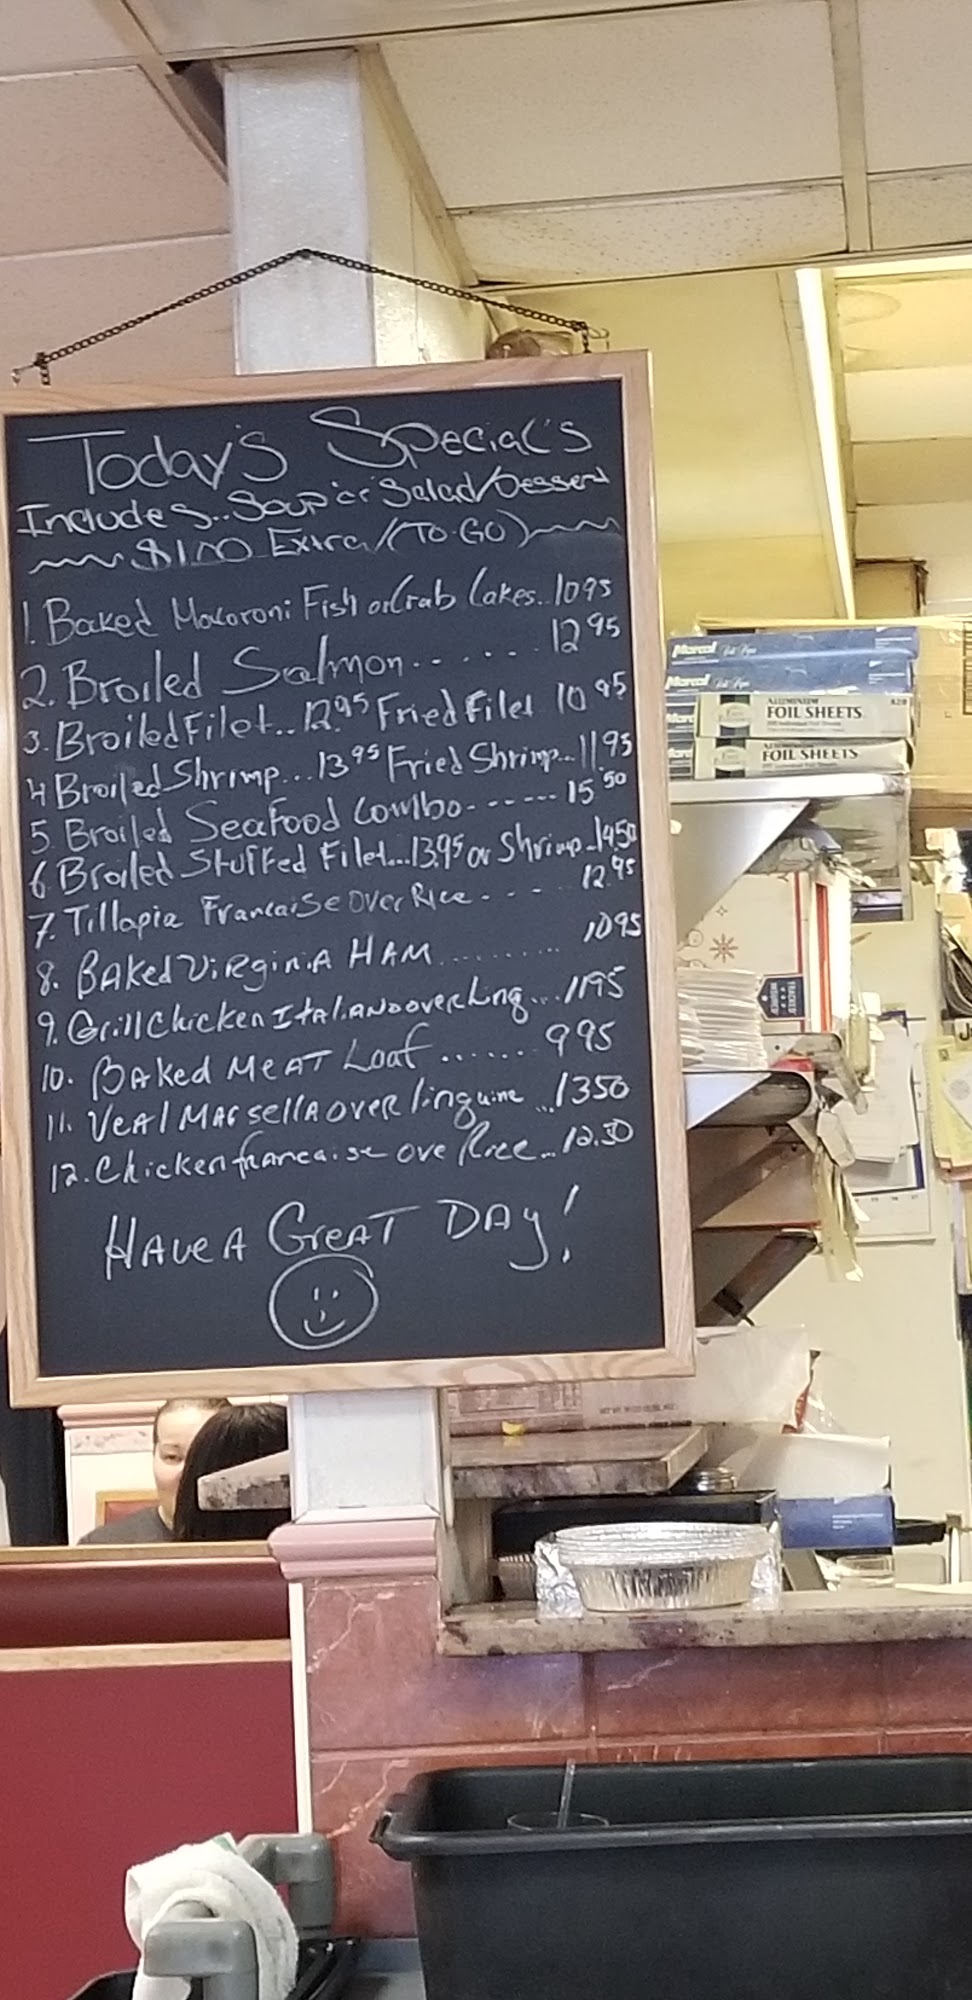 Today's Special's
Includes.. Soup or Salad/Dessert
$1.00 Extra/(TO-GO)
1. Baked Macaroni Fish or Crab Cakes.. 1095
2. Broiled Salmon....... 12 95
3. Broiled Filet.. 12.95 Fried Filet 10 95
4 Broiled Shrimp... 13 95 Fried Shrimp.. 11 95
5 Broiled SeaFood Combo------ 15 50
6 Broiled Stuffed Filet...13.95 or Shrimp..1450
7. Tillapia Francaise Over Rice - - - - 12.95
8. BAked ViRginiA HAM.......... 1095
9. Grill Chicken ItaliANo over Ling... 1195
10. BAked MeAT Loaf ....... 995
11. VeAl MARsellA over linguine ...1350
12. Chicken francaise ove Rice... 12.50
HAve A GreAT DAy!
Marcal
Marcal
ALUMINUM
FOIL SHEETS
ALUMINUM
FOIL SHEETS